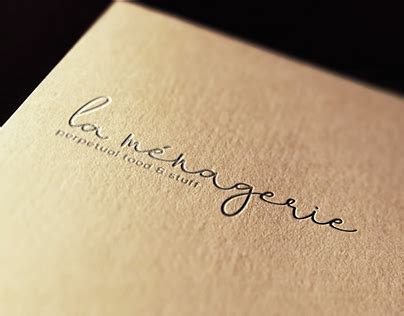 la ménagerie
perpetual food & stuff